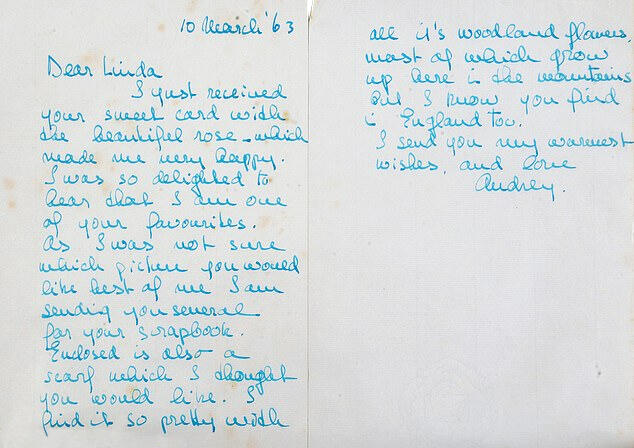 10 March '63
Dear Linda
I just received
your sweet card with
the beautiful rose - which
made me very happy.
I was so delighted to
hear that I am one
of your favourites.
As I was not sure
which picture you would
like best of me I am
sending you several
for your scrapbook.
Enclosed is also a
scarf which I thought
you would like. I
find it so pretty with
all it's woodland flowers,
most of which grow
up here in the mountains
But I know you find
in England too.
I send you my warmest
wishes, and love
Audrey.